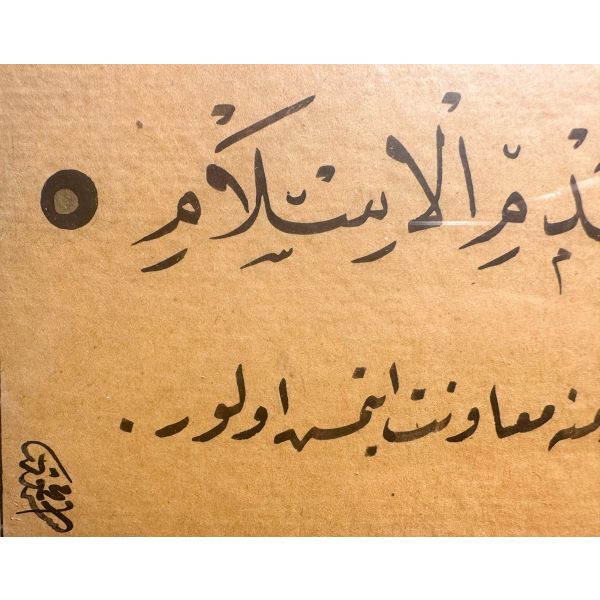 دْمِ الْاِسْلَامِ
منه معاونت ايتمش اولور .